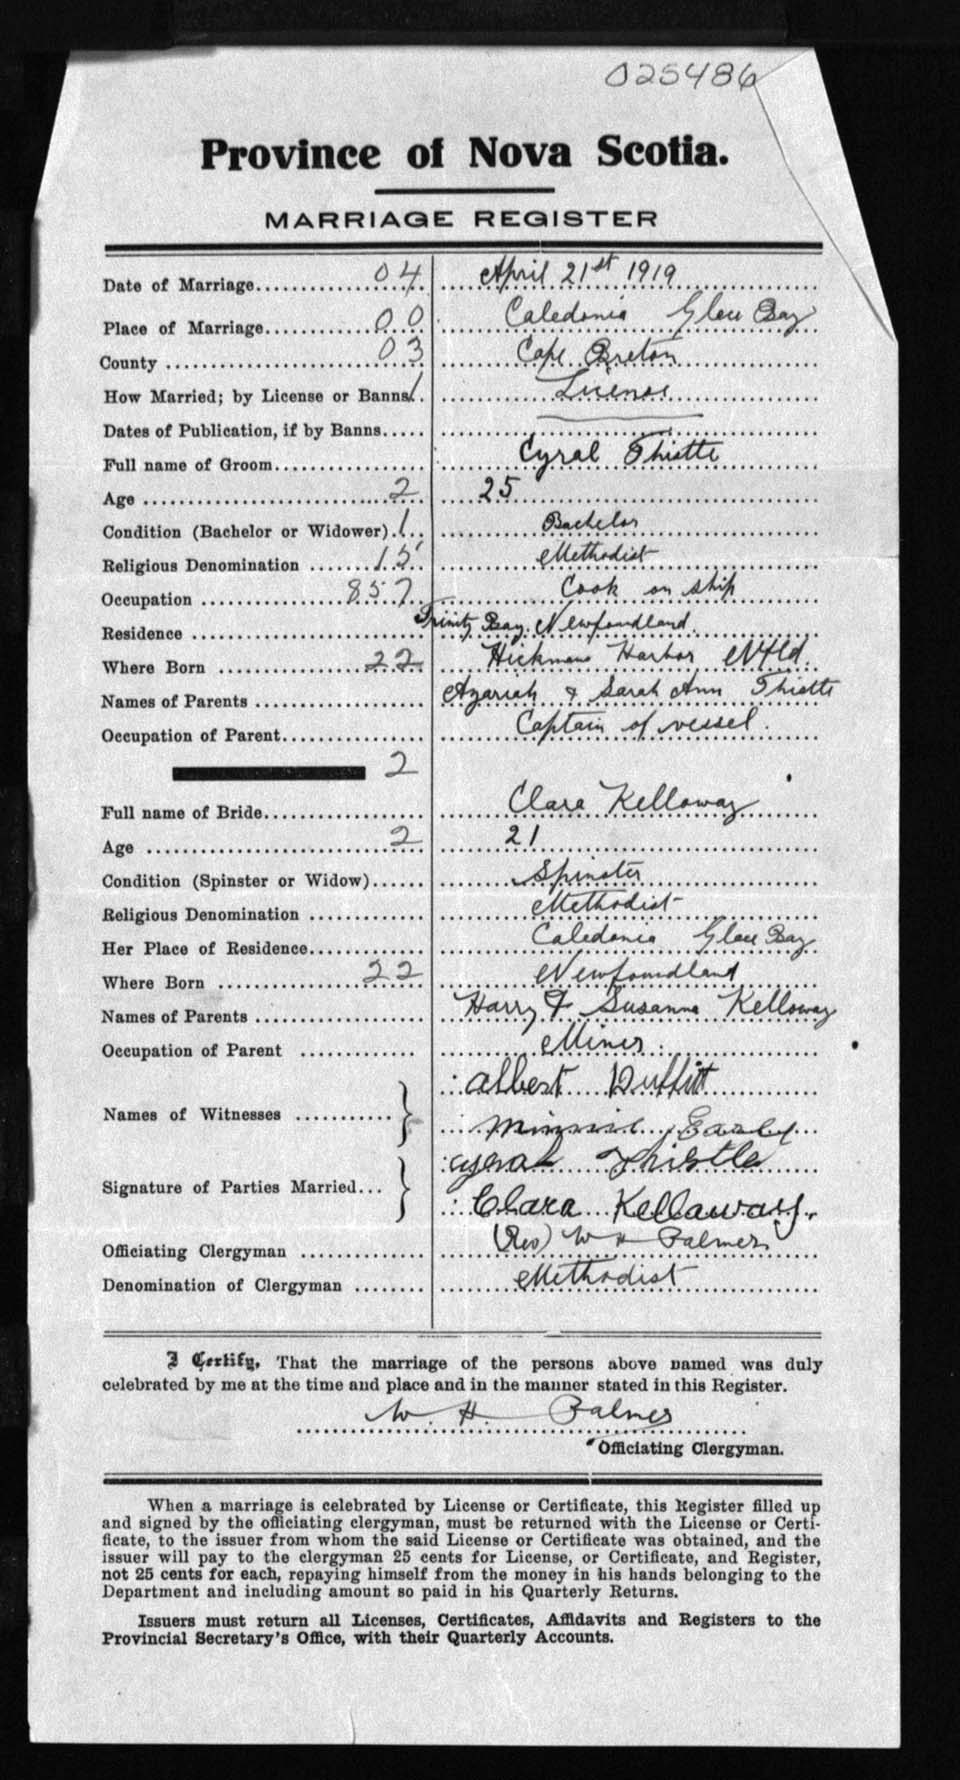 025486
Province of Nova Scotia.
MARRIAGE REGISTER
Date of Marriage 04 April 21st 1919
Place of Marriage 00 Caledonia Glace Bay
County 03 Cape Breton
How Married; by License or Banns 1 License
Dates of Publication, if by Banns
Full name of Groom Cyral Thistle
Age 2 25
Condition (Bachelor or Widower) 1 Bachelor
Religious Denomination 15 Methodist
Occupation 857 Cook on ship
Residence Trinity Bay, Newfoundland
Where Born 22 Hickmans Harbor Nfld.
Names of Parents Azariah & Sarah Ann Thistle
Occupation of Parent Captain of vessel.
2
Full name of Bride Clara Kelloway
Age 2 21
Condition (Spinster or Widow) Spinster
Religious Denomination Methodist
Her Place of Residence Caledonia Glace Bay
Where Born 22 Newfoundland
Names of Parents Harry & Susanna Kelloway
Occupation of Parent Miner.
Names of Witnesses Albert Duffitt
Minnie
Signature of Parties Married Cyral Thistle
Clara Kellaway.
Officiating Clergyman (Rev) W H Palmer
Denomination of Clergyman Methodist
I Certify, That the marriage of the persons above named was duly
celebrated by me at the time and place and in the manner stated in this Register.
W. H. Palmer
Officiating Clergyman.
When a marriage is celebrated by License or Certificate, this Register filled up
and signed by the officiating clergyman, must be returned with the License or Certi-
ficate, to the issuer from whom the said License or Certificate was obtained, and the
issuer will pay to the clergyman 25 cents for License, or Certificate, and Register,
not 25 cents for each, repaying himself from the money in his hands belonging to the
Department and including amount so paid in his Quarterly Returns.
Issuers must return all Licenses, Certificates, Affidavits and Registers to the
Provincial Secretary's Office, with their Quarterly Accounts.